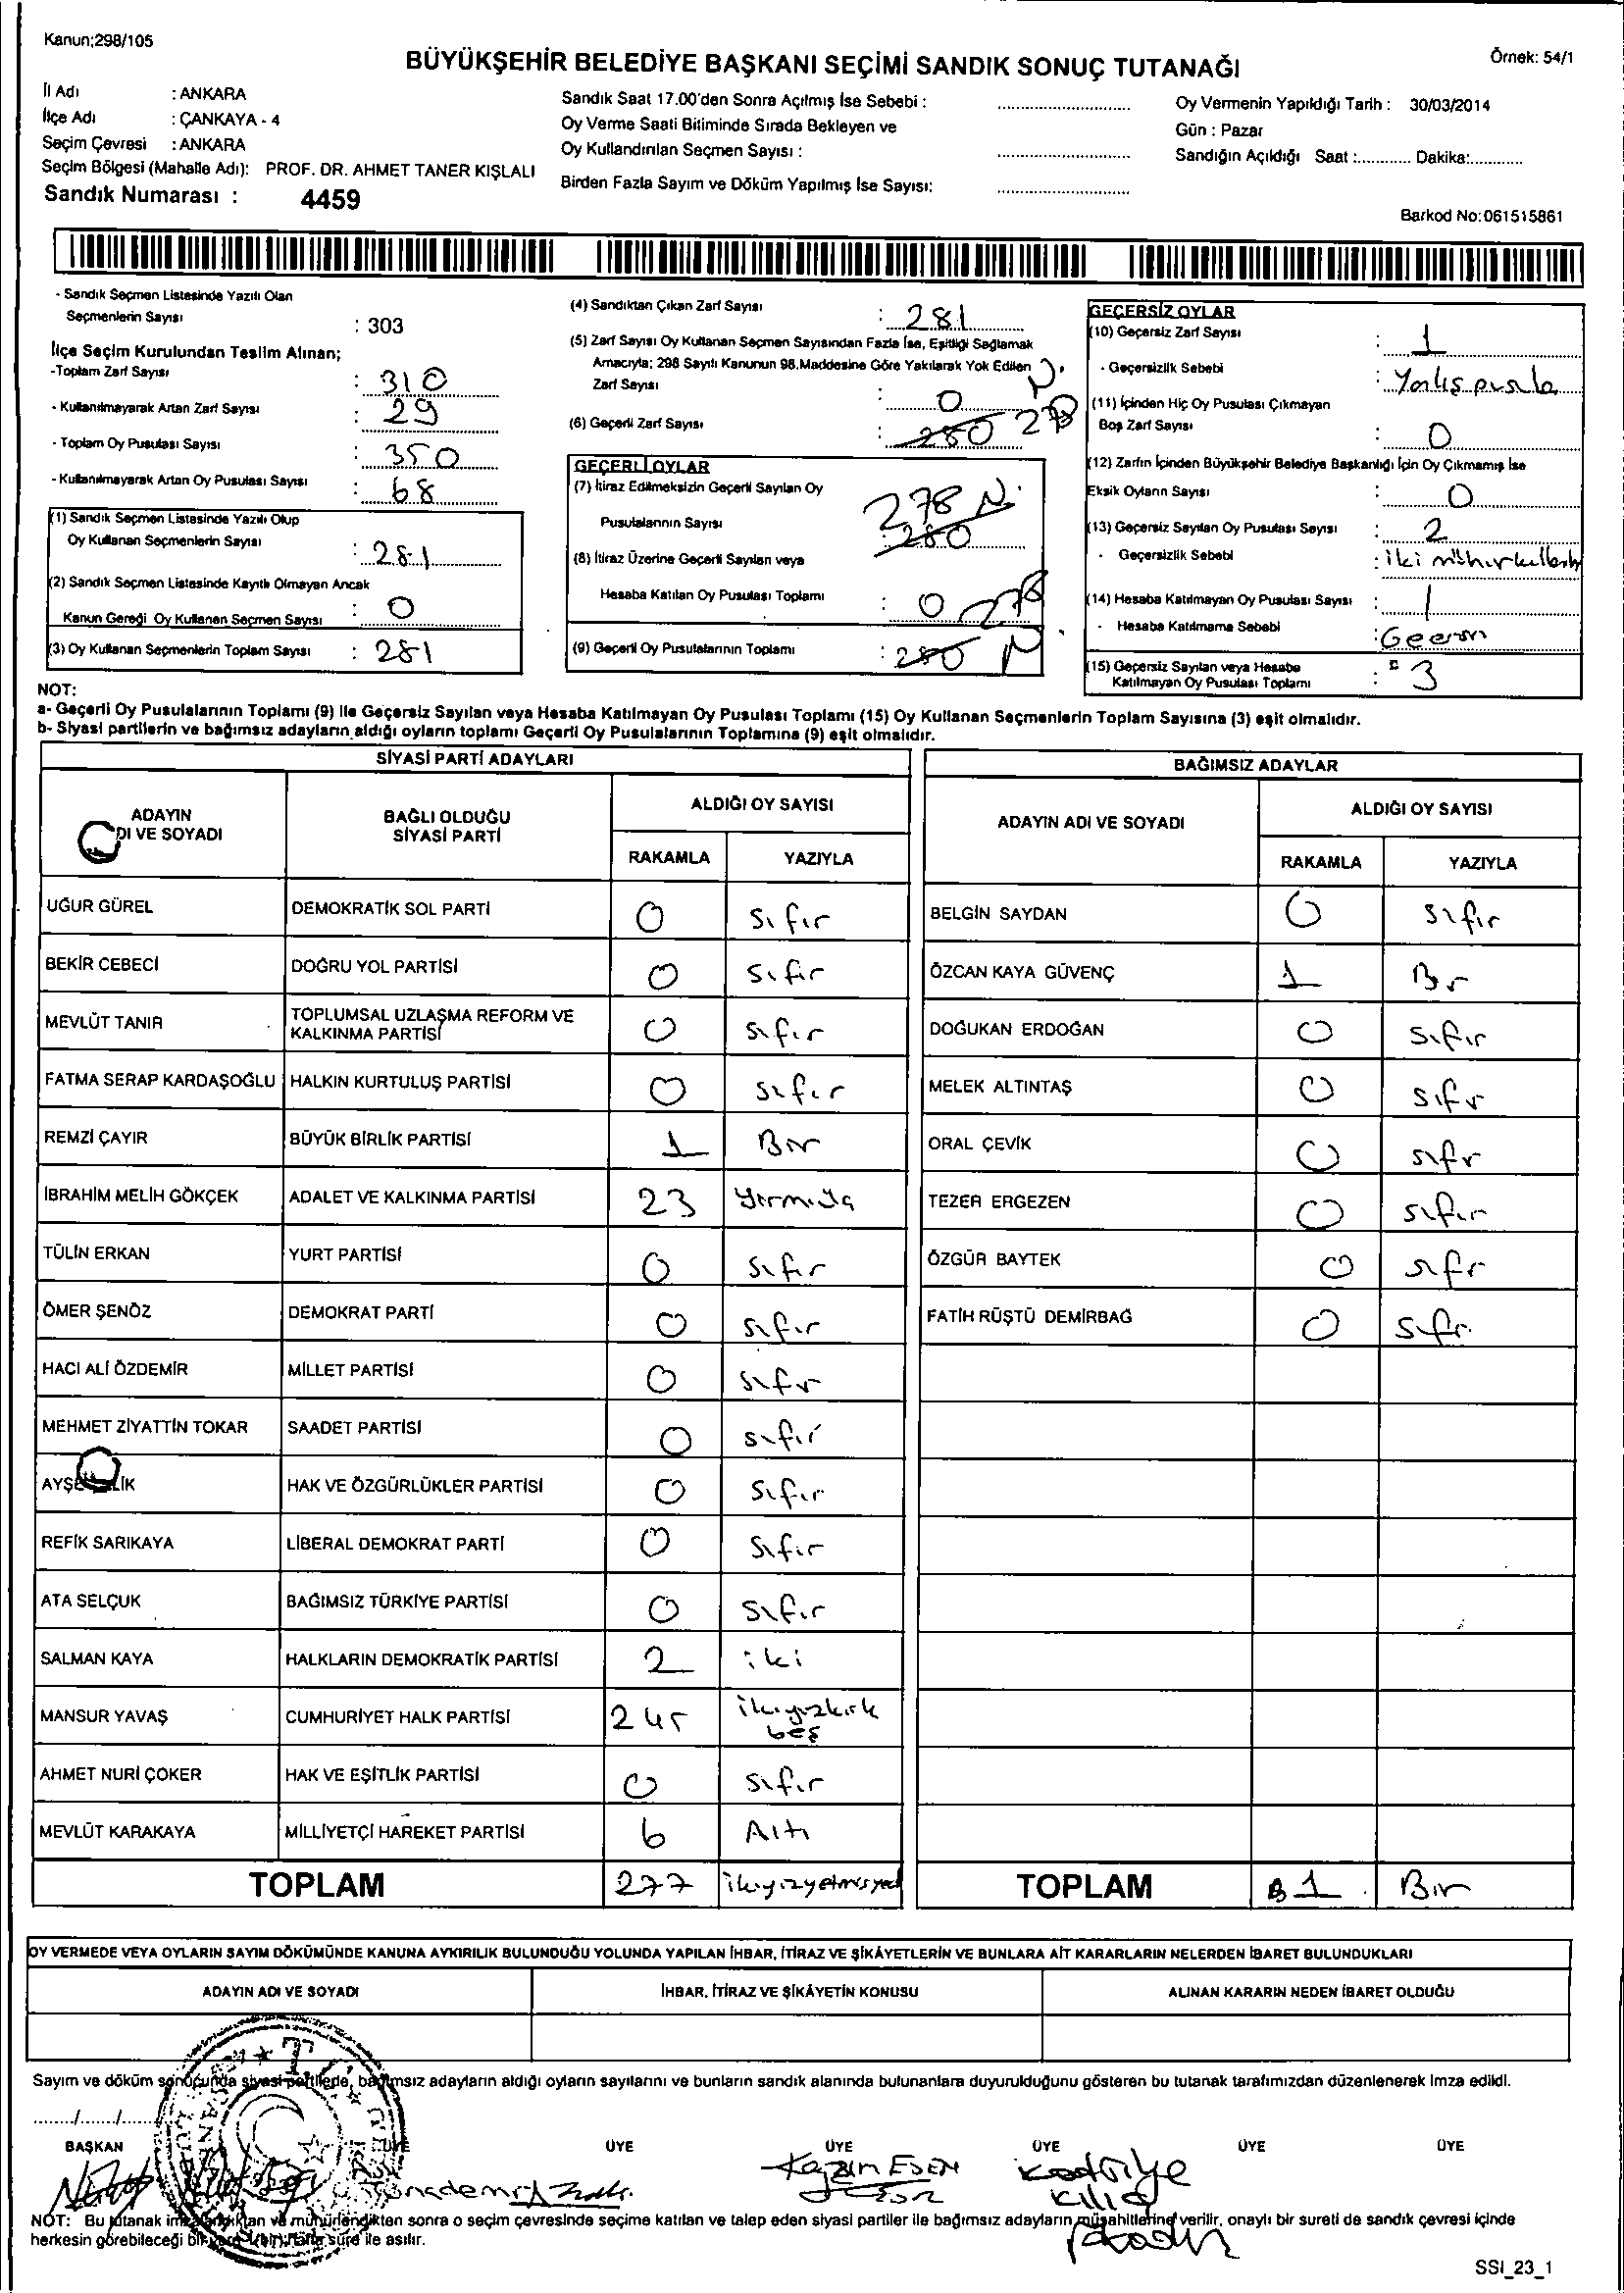 Kanun;298/105
BÜYÜKŞEHİR BELEDİYE BAŞKANI SEÇİMİ SANDIK SONUÇ TUTANAĞI
Örnek: 54/1
İl Adı : ANKARA
İlçe Adı : ÇANKAYA - 4
Seçim Çevresi : ANKARA
Seçim Bölgesi (Mahalle Adı): PROF. DR. AHMET TANER KIŞLALI
Sandık Numarası : 4459
Sandık Saat 17.00'den Sonra Açılmış İse Sebebi :
Oy Verme Saati Bitiminde Sırada Bekleyen ve
Oy Kullandırılan Seçmen Sayısı :
Birden Fazla Sayım ve Döküm Yapılmış İse Sayısı:
Oy Vermenin Yapıldığı Tarih : 30/03/2014
Gün : Pazar
Sandığın Açıldığı Saat :............ Dakika:............
Barkod No:061515861
- Sandık Seçmen Listesinde Yazılı Olan
Seçmenlerin Sayısı : 303
İlçe Seçim Kurulundan Teslim Alınan;
-Toplam Zarf Sayısı : 310
- Kullanılmayarak Artan Zarf Sayısı : 29
- Toplam Oy Pusulası Sayısı : 350
- Kullanılmayarak Artan Oy Pusulası Sayısı : 68
(1) Sandık Seçmen Listesinde Yazılı Olup
Oy Kullanan Seçmenlerin Sayısı : 281
(2) Sandık Seçmen Listesinde Kayıtlı Olmayan Ancak
Kanun Gereği Oy Kullanan Seçmen Sayısı : 0
(3) Oy Kullanan Seçmenlerin Toplam Sayısı : 281
(4) Sandıktan Çıkan Zarf Sayısı : 281
(5) Zarf Sayısı Oy Kullanan Seçmen Sayısından Fazla İse, Eşitliği Sağlamak
Amacıyla; 298 Sayılı Kanunun 98.Maddesine Göre Yakılarak Yok Edilen
Zarf Sayısı : 0
(6) Geçerli Zarf Sayısı : 280 278
GEÇERLİ OYLAR
(7) İtiraz Edilmeksizin Geçerli Sayılan Oy
Pusulalarının Sayısı : 280 278 N.
(8) İtiraz Üzerine Geçerli Sayılan veya
Hesaba Katılan Oy Pusulası Toplamı : 0
(9) Geçerli Oy Pusulalarının Toplamı : 280 278
GEÇERSİZ OYLAR
(10) Geçersiz Zarf Sayısı : 1
- Geçersizlik Sebebi : Yanlış pusula
(11) İçinden Hiç Oy Pusulası Çıkmayan
Boş Zarf Sayısı : 0
(12) Zarfın İçinden Büyükşehir Belediye Başkanlığı İçin Oy Çıkmamış İse
Eksik Oyların Sayısı : 0
(13) Geçersiz Sayılan Oy Pusulası Sayısı : 2
- Geçersizlik Sebebi : iki mühür
(14) Hesaba Katılmayan Oy Pusulası Sayısı : 1
- Hesaba Katılmama Sebebi :
(15) Geçersiz Sayılan veya Hesaba
Katılmayan Oy Pusulası Toplamı : 3
NOT:
a- Geçerli Oy Pusulalarının Toplamı (9) ile Geçersiz Sayılan veya Hesaba Katılmayan Oy Pusulası Toplamı (15) Oy Kullanan Seçmenlerin Toplam Sayısına (3) eşit olmalıdır.
b- Siyasi partilerin ve bağımsız adayların aldığı oyların toplamı Geçerli Oy Pusulalarının Toplamına (9) eşit olmalıdır.
SİYASİ PARTİ ADAYLARI
ADAYIN
DI VE SOYADI
BAĞLI OLDUĞU
SİYASİ PARTİ
ALDIĞI OY SAYISI
RAKAMLA YAZIYLA
UĞUR GÜREL DEMOKRATİK SOL PARTİ 0 sıfır
BEKİR CEBECİ DOĞRU YOL PARTİSİ 0 sıfır
MEVLÜT TANIR TOPLUMSAL UZLAŞMA REFORM VE
KALKINMA PARTİSİ 0 sıfır
FATMA SERAP KARDAŞOĞLU HALKIN KURTULUŞ PARTİSİ 0 sıfır
REMZİ ÇAYIR BÜYÜK BİRLİK PARTİSİ 1 Bir
İBRAHİM MELİH GÖKÇEK ADALET VE KALKINMA PARTİSİ 23 yirmi üç
TÜLİN ERKAN YURT PARTİSİ 0 sıfır
ÖMER ŞENÖZ DEMOKRAT PARTİ 0 sıfır
HACI ALİ ÖZDEMİR MİLLET PARTİSİ 0 sıfır
MEHMET ZİYATTİN TOKAR SAADET PARTİSİ 0 sıfır
AYŞE LİK HAK VE ÖZGÜRLÜKLER PARTİSİ 0 sıfır
REFİK SARIKAYA LİBERAL DEMOKRAT PARTİ 0 sıfır
ATA SELÇUK BAĞIMSIZ TÜRKİYE PARTİSİ 0 sıfır
SALMAN KAYA HALKLARIN DEMOKRATİK PARTİSİ 2 iki
MANSUR YAVAŞ CUMHURİYET HALK PARTİSİ 245 ikiyüzkırk
beş
AHMET NURİ ÇOKER HAK VE EŞİTLİK PARTİSİ 0 sıfır
MEVLÜT KARAKAYA MİLLİYETÇİ HAREKET PARTİSİ 6 Altı
TOPLAM 277 ikiyüzyetmişyedi
BAĞIMSIZ ADAYLAR
ADAYIN ADI VE SOYADI
ALDIĞI OY SAYISI
RAKAMLA YAZIYLA
BELGİN SAYDAN 0 sıfır
ÖZCAN KAYA GÜVENÇ 1 Bir
DOĞUKAN ERDOĞAN 0 sıfır
MELEK ALTINTAŞ 0 sıfır
ORAL ÇEVİK 0 sıfır
TEZER ERGEZEN 0 sıfır
ÖZGÜR BAYTEK 0 sıfır
FATİH RÜŞTÜ DEMİRBAĞ 0 sıfır
TOPLAM 1 Bir
OY VERMEDE VEYA OYLARIN SAYIM DÖKÜMÜNDE KANUNA AYKIRILIK BULUNDUĞU YOLUNDA YAPILAN İHBAR, İTİRAZ VE ŞİKÂYETLERİN VE BUNLARA AİT KARARLARIN NELERDEN İBARET BULUNDUKLARI
ADAYIN ADI VE SOYADI İHBAR, İTİRAZ VE ŞİKÂYETİN KONUSU ALINAN KARARIN NEDEN İBARET OLDUĞU
Sayım ve döküm sonucunda siyasi partilerle, bağımsız adayların aldığı oyların sayılarını ve bunların sandık alanında bulunanlara duyurulduğunu gösteren bu tutanak tarafımızdan düzenlenerek imza edildi.
....../....../......
BAŞKAN ÜYE ÜYE ÜYE ÜYE ÜYE ÜYE
Kazım ESEN Kadriye
Kılıç
NOT: Bu tutanak imzalandıktan ve mühürlendikten sonra o seçim çevresinde seçime katılan ve talep eden siyasi partiler ile bağımsız adayların müşahitlerine verilir, onaylı bir sureti de sandık çevresi içinde
herkesin görebileceği bir yere (bir) hafta süre ile asılır.
SSI_23_1